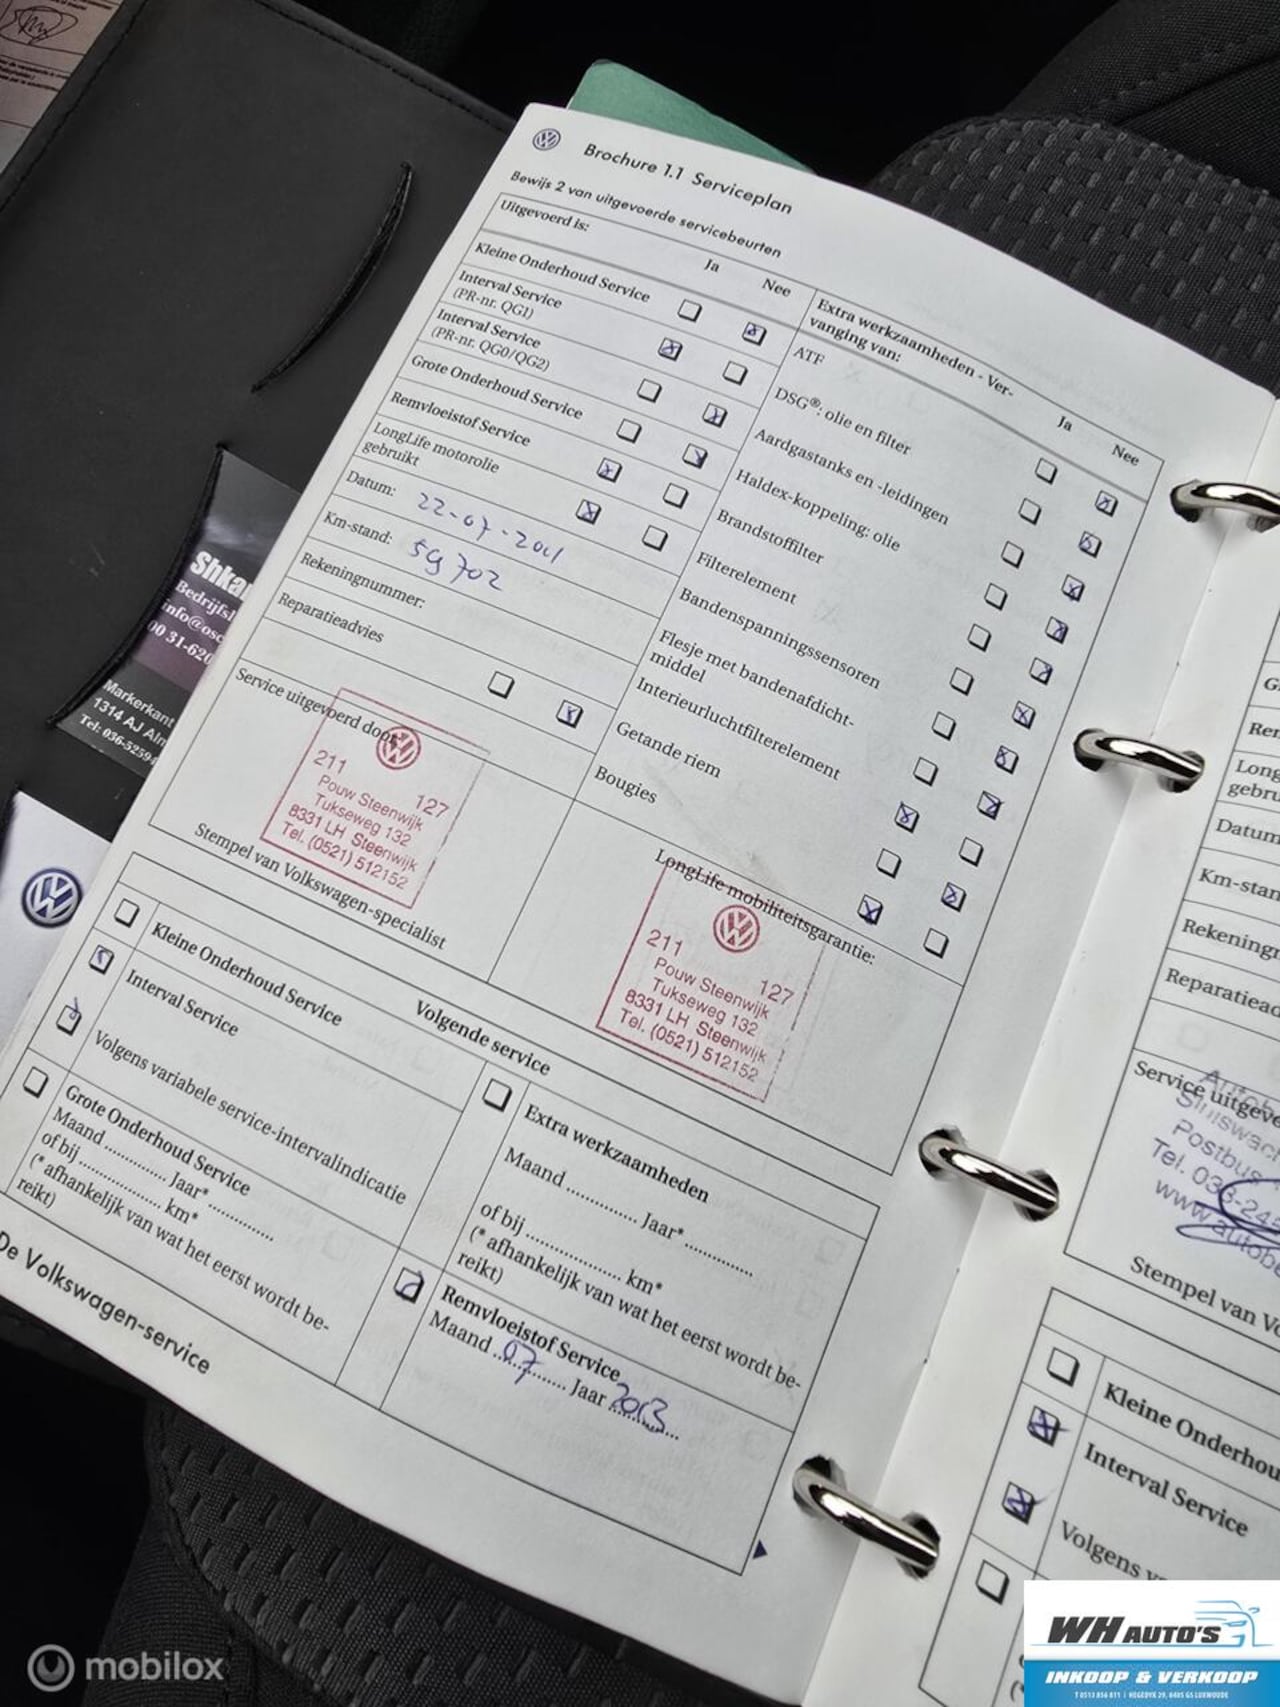 Brochure 1.1 Serviceplan
Bewijs 2 van uitgevoerde servicebeurten
Uitgevoerd is:
Ja
Nee
Kleine Onderhoud Service
Interval Service
(PR-nr. QG1)
Interval Service
(PR-nr. QG0/QG2)
Grote Onderhoud Service
Remvloeistof Service
LongLife motorolie
gebruikt
Datum:
Km-stand:
59 702
Rekeningnummer:
Reparatieadvies
Service uitgevoerd door
211
127
Pouw Steenwijk
Tukseweg 132
8331 LH Steenwijk
Tel. (0521) 512152
Stempel van Volkswagen-specialist
Extra werkzaamheden - Ver-
vanging van:
Ja
Nee
ATF
DSG®: olie en filter
Aardgastanks en -leidingen
Haldex-koppeling: olie
Brandstoffilter
Filterelement
Bandenspanningssensoren
Flesje met bandenafdicht-
middel
Interieurluchtfilterelement
Getande riem
Bougies
LongLife mobiliteitsgarantie:
211
127
Pouw Steenwijk
Tukseweg 132
8331 LH Steenwijk
Tel. (0521) 512152
Volgende service
Kleine Onderhoud Service
Interval Service
Volgens variabele service-intervalindicatie
Grote Onderhoud Service
Maand .............. Jaar* ..............
of bij .................. km*
(* afhankelijk van wat het eerst wordt be-
reikt)
Extra werkzaamheden
Maand .............. Jaar* ..............
of bij .................. km*
(* afhankelijk van wat het eerst wordt be-
reikt)
Remvloeistof Service
Maand 07 Jaar 2013
De Volkswagen-service
Datum
Km-stan
Rekening
Reparatiead
Service uitgevo
Postbus
www.autobe
Stempel van Vo
Kleine Onderhou
Interval Service
Volgens v
Shka
Bedrijfsl
info@osc
00 31-620
Markerkant
1314 AJ Alm
Tel: 036-5259
WH AUTO'S
INKOOP & VERKOOP
T 0513 856 811 | HEGEDYK 29, 8405 GS LUXWOUDE
mobilox